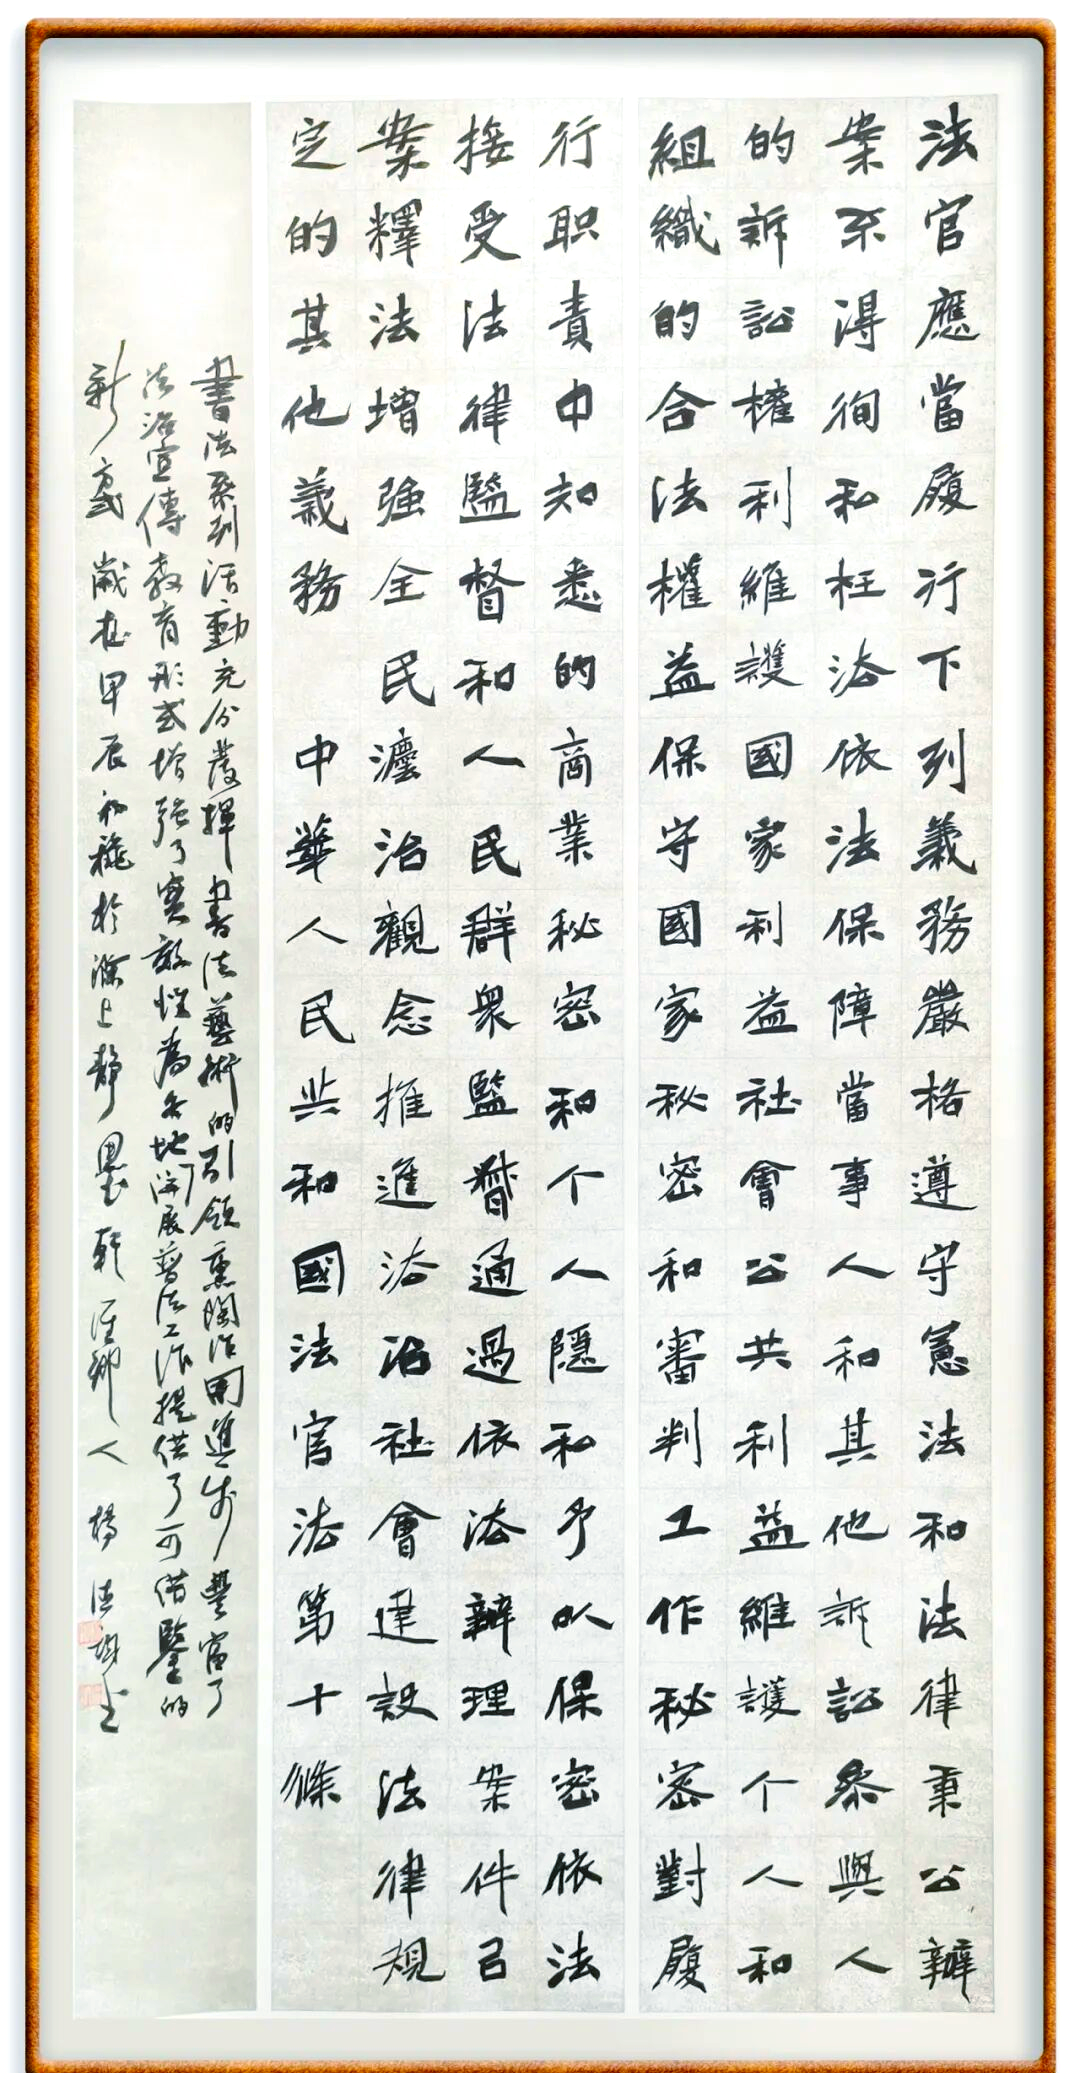 法官應當履行下列義務嚴格遵守憲法和法律秉公辦
案不得徇私枉法依法保障當事人和其他訴訟參與人
的訴訟權利維護國家利益社會公共利益維護个人和
組織的合法權益保守國家秘密和審判工作秘密對履
行职責中知悉的商業秘密和个人隱私予以保密依法
接受法律監督和人民群衆監督通過依法辦理案件㠯
案釋法增强全民灋治觀念推進法治社會建設法律規
定的其他義務 中華人民共和國法官法第十條
書法系列活動充分發揮書法藝術的引領熏陶作用進步豐富了
法治宣傳教育形式增强了實效性為各地開展普法工作提供了可借鑒的
新方式歲在甲辰初秋於滁上靜墨軒淮鄉人楊德书